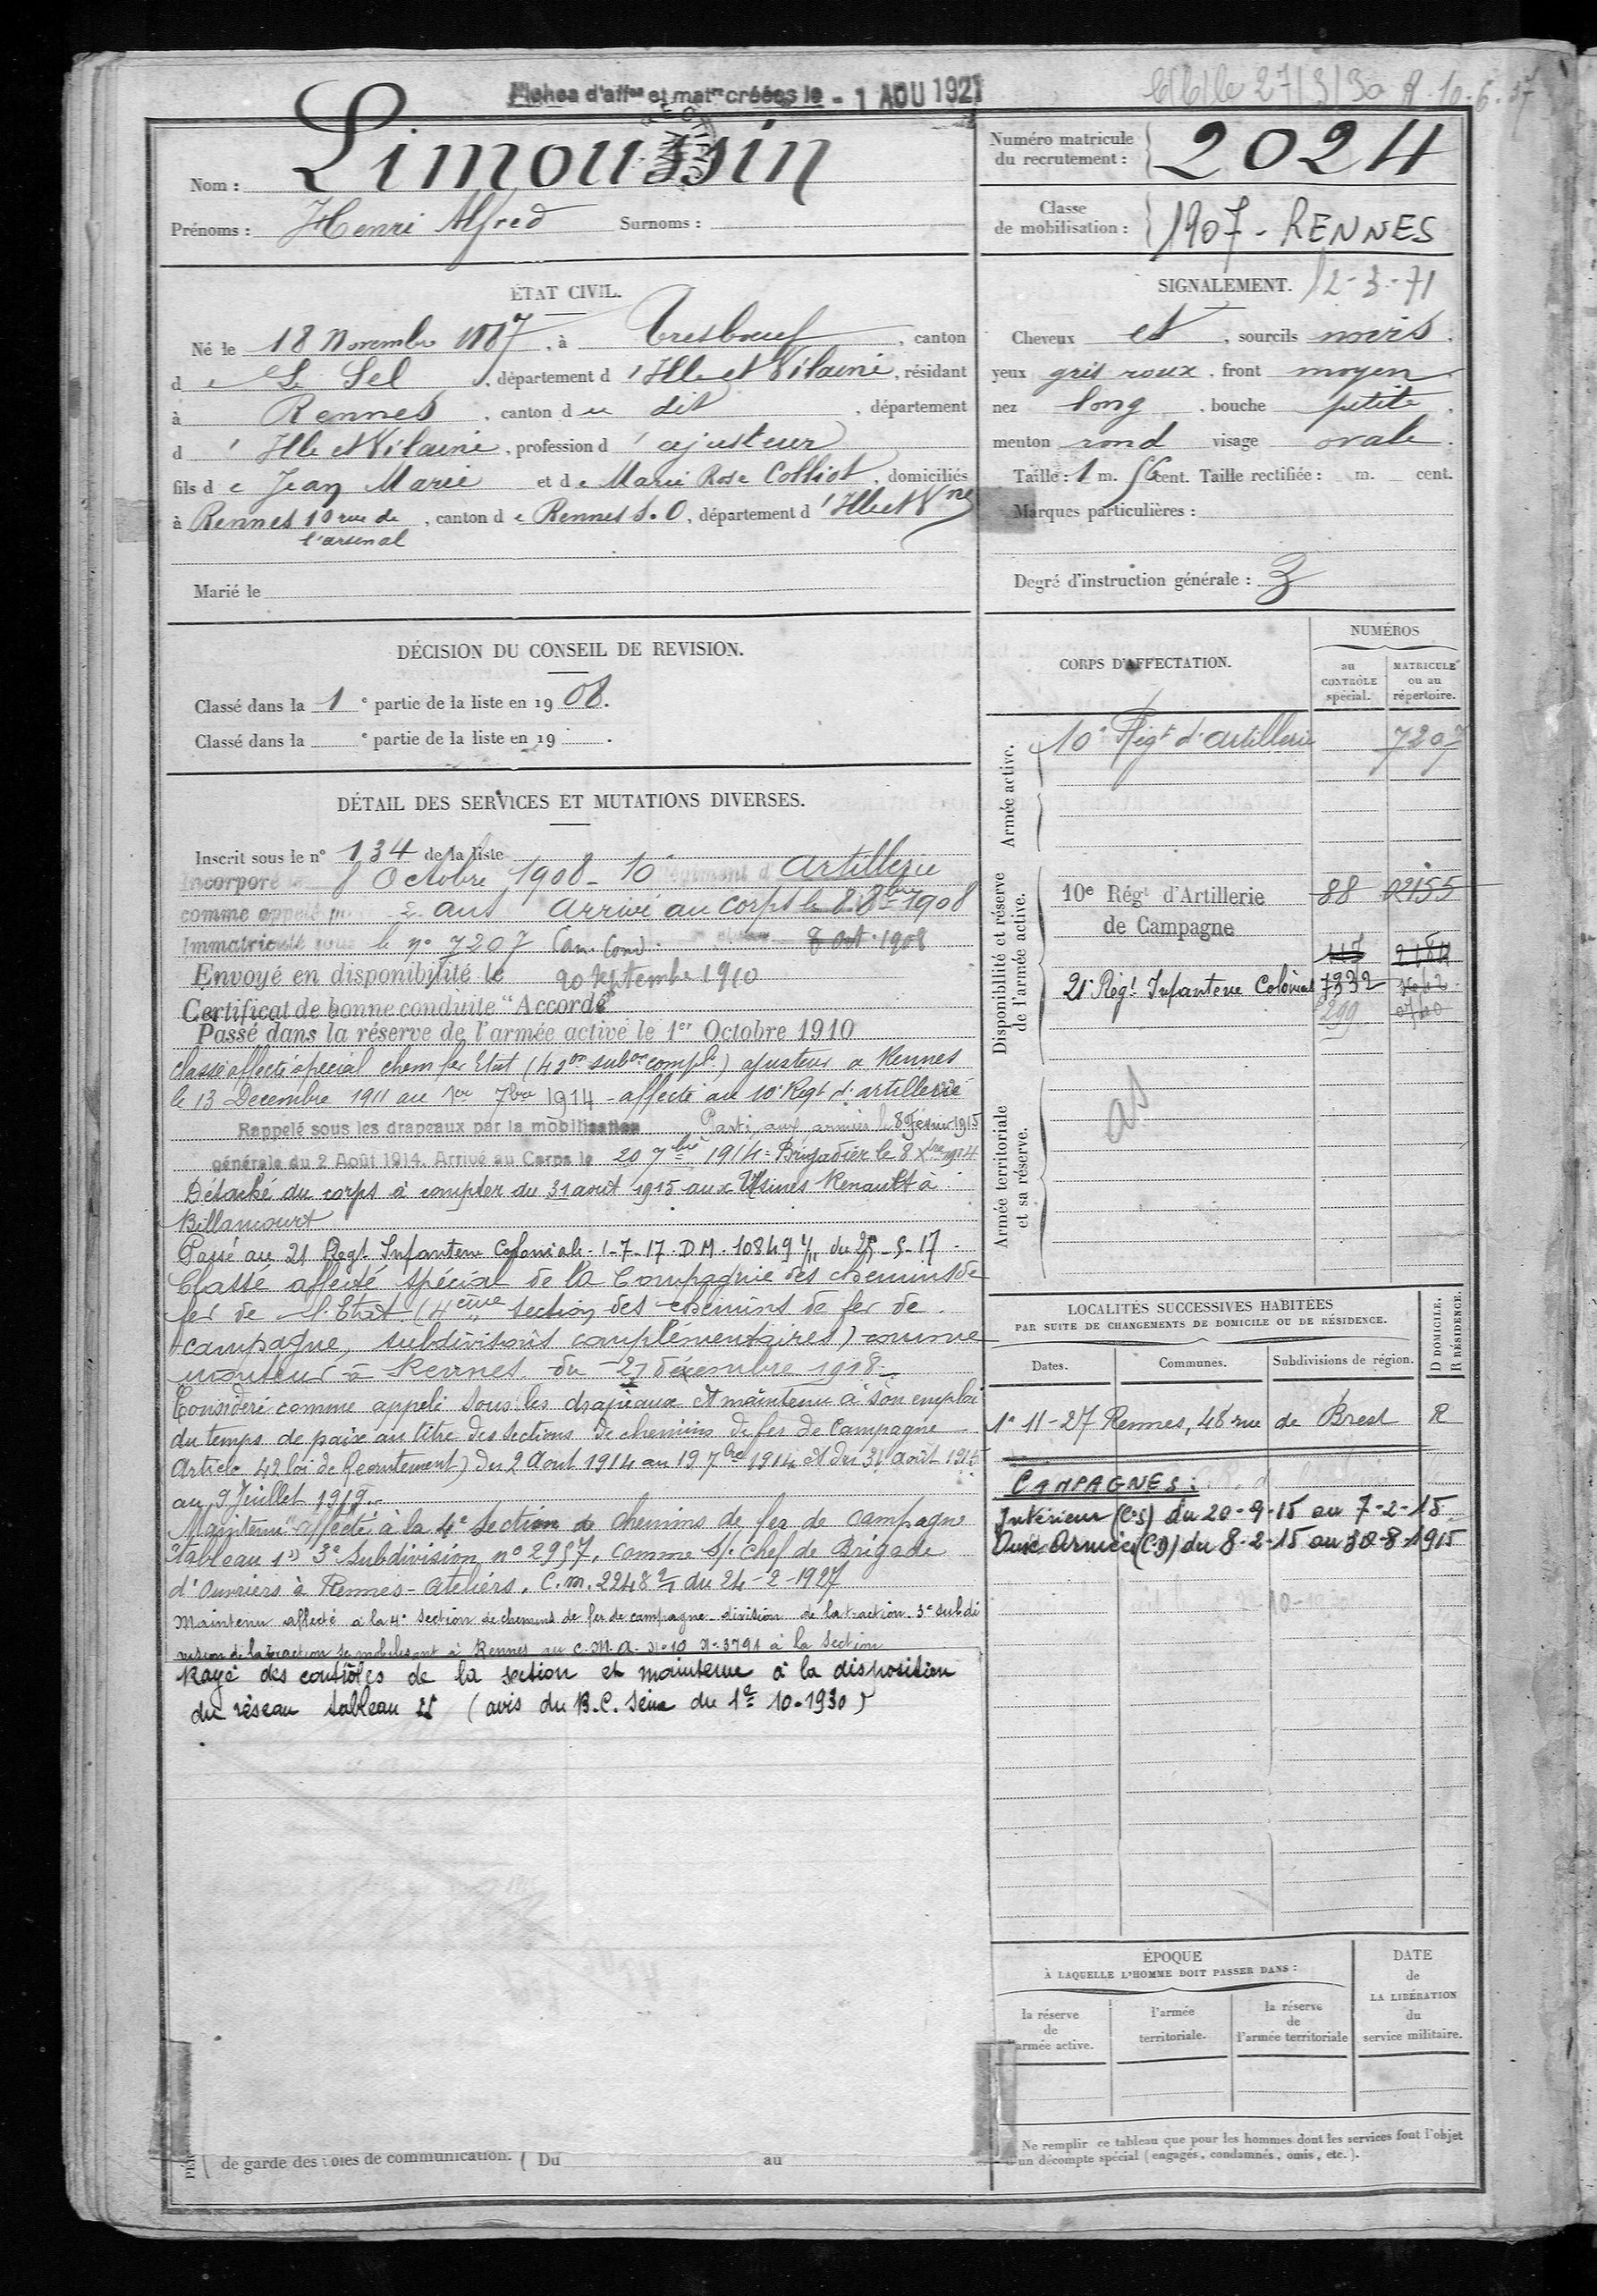 Fiches d'affon et matn créées le - 1 AOU 1927
27/3/30 R. 10.6.37
Nom : Limoussin
Prénoms : Henri Alfred Surnoms :
Numéro matricule
du recrutement : 2024
Classe
de mobilisation : 1907 - RENNES
ÉTAT CIVIL.
Né le 18 Novembre 1887, à Tresboeuf, canton
de Le Sel, département d'Ille et Vilaine, résidant
à Rennes, canton du dit, département
d'Ille et Vilaine, profession d'ajusteur
fils de Jean Marie et de Marie Rose Colliot, domiciliés
à Rennes 10 rue de l'arsenal, canton de Rennes S.O, département d'Ille et Vne
Marié le
SIGNALEMENT. 12-3-71
Cheveux et, sourcils noirs.
yeux gris roux, front moyen
nez long, bouche petite,
menton rond visage ovale.
Taille : 1 m. 56 cent. Taille rectifiée : m. cent.
Marques particulières :
Degré d'instruction générale : 3
DÉCISION DU CONSEIL DE REVISION.
Classé dans la 1e partie de la liste en 1908.
Classé dans la e partie de la liste en 19 .
DÉTAIL DES SERVICES ET MUTATIONS DIVERSES.
Inscrit sous le n° 134 de la liste
Incorporé le 8 Octobre 1908 - 10e Régiment d'Artillerie
comme appelé pour 2 ans Arrivé au corps le 8 8bre 1908
Immatriculé sous le n° 7207 Can. Cond. 8 Oct. 1908
Envoyé en disponibilité le 20 Septembre 1910
Certificat de bonne conduite "Accordé"
Passé dans la réserve de l'armée active le 1er Octobre 1910
Classé affecté spécial chem fer Etat (4e son subon compl.) ajusteur a Rennes
le 13 Decembre 1911 au 1er 7bre 1914 - affecté au 10e Regt d'artillerie
Rappelé sous les drapeaux par la mobilisation Parti aux armées le 8 Février 1915
générale du 2 Août 1914. Arrivé au Corps le 20 7bre 1914 = Brigadier le 8 Xbre 1914
Détaché du corps à compter du 31 août 1915 aux Usines Renault à
Billancourt
Passé au 21 Regt. Infanterie Coloniale. 1-7-17. D.M. 10849 du 25-5-17.
Classé affecté spécial de la Compagnie des chemins de
fer de l'Etat. (4ème section des chemins de fer de
campagne, subdivisions complémentaires) comme
monteur à Rennes du 27 décembre 1918.
Considéré comme appelé sous les drapeaux et maintenu à son emploi
du temps de paix au titre des sections de chemins de fer de Campagne
Article 42 loi de Recrutement) du 2 Aout 1914 au 19 7bre 1914 et du 31 Août 1915
au 9 Juillet 1919.
Maintenu affecté à la 4e Section de chemins de fer de campagne
Tableau 1) 3e Subdivision, n° 2957, comme S/ chef de Brigade
d'Ouvriers à Rennes-Ateliers. C.m. 2248 2/4 du 24-2-1927
Maintenu affecté à la 4e section de chemins de fer de campagne - division de la traction. 3e subdi
vision de la traction se mobilisant à Rennes au C.M.A. N° 10 N° 3791 à la section
Rayé des contrôles de la section et maintenu à la disposition
du réseau tableau (avis du B.C. Seine du 1er 10-1930)
CORPS D'AFFECTATION.
NUMÉROS
au CONTRÔLE spécial.
MATRICULE ou au répertoire.
Armée active.
10e Régt d'artillerie 7207
Disponibilité et réserve de l'armée active.
10e Régt d'Artillerie 88 02155
de Campagne
21e Régt Infanterie Colonial 7332
299
Armée territoriale et sa réserve.
as
LOCALITÉS SUCCESSIVES HABITÉES
PAR SUITE DE CHANGEMENTS DE DOMICILE OU DE RÉSIDENCE.
Dates. Communes. Subdivisions de région. D DOMICILE. R RÉSIDENCE.
1e 11-27 Rennes, 48 rue de Brest R
CAMPAGNES :
Intérieur (CS) du 20-9-15 au 7-2-15
Aux Armées (CD) du 8-2-15 au 30-8-1915
ÉPOQUE
À LAQUELLE L'HOMME DOIT PASSER DANS :
la réserve de l'armée active.
l'armée territoriale.
la réserve de l'armée territoriale
DATE de LA LIBÉRATION du service militaire.
de garde des voies de communication. ( Du au
Ne remplir ce tableau que pour les hommes dont les services font l'objet
d'un décompte spécial (engagés, condamnés, omis, etc.).